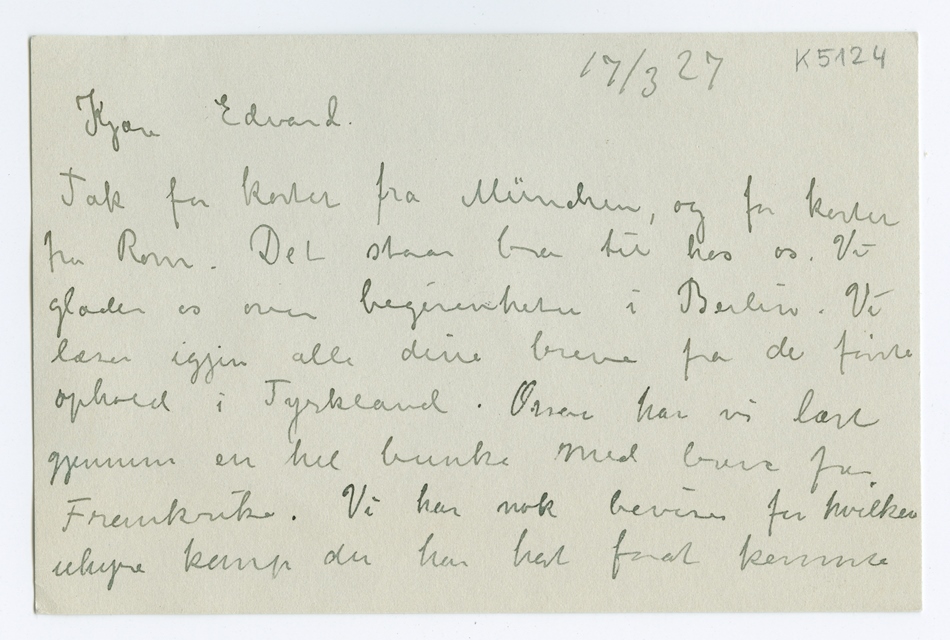 17/3 27 K5124
Kjære Edvard.
Tak for kortet fra München, og for kortet
fra Rom. Det staar bra til hos os. Vi
glæder os over begivenheten i Berlin. Vi
læser igjen alle dine breve fra de første
ophold i Tyskland. Ossaa har vi læst
gjennem en hel bunke med breve fra
Frankrike. Vi har nok beviser for hvilken
uhyre kamp du har hat forat komme